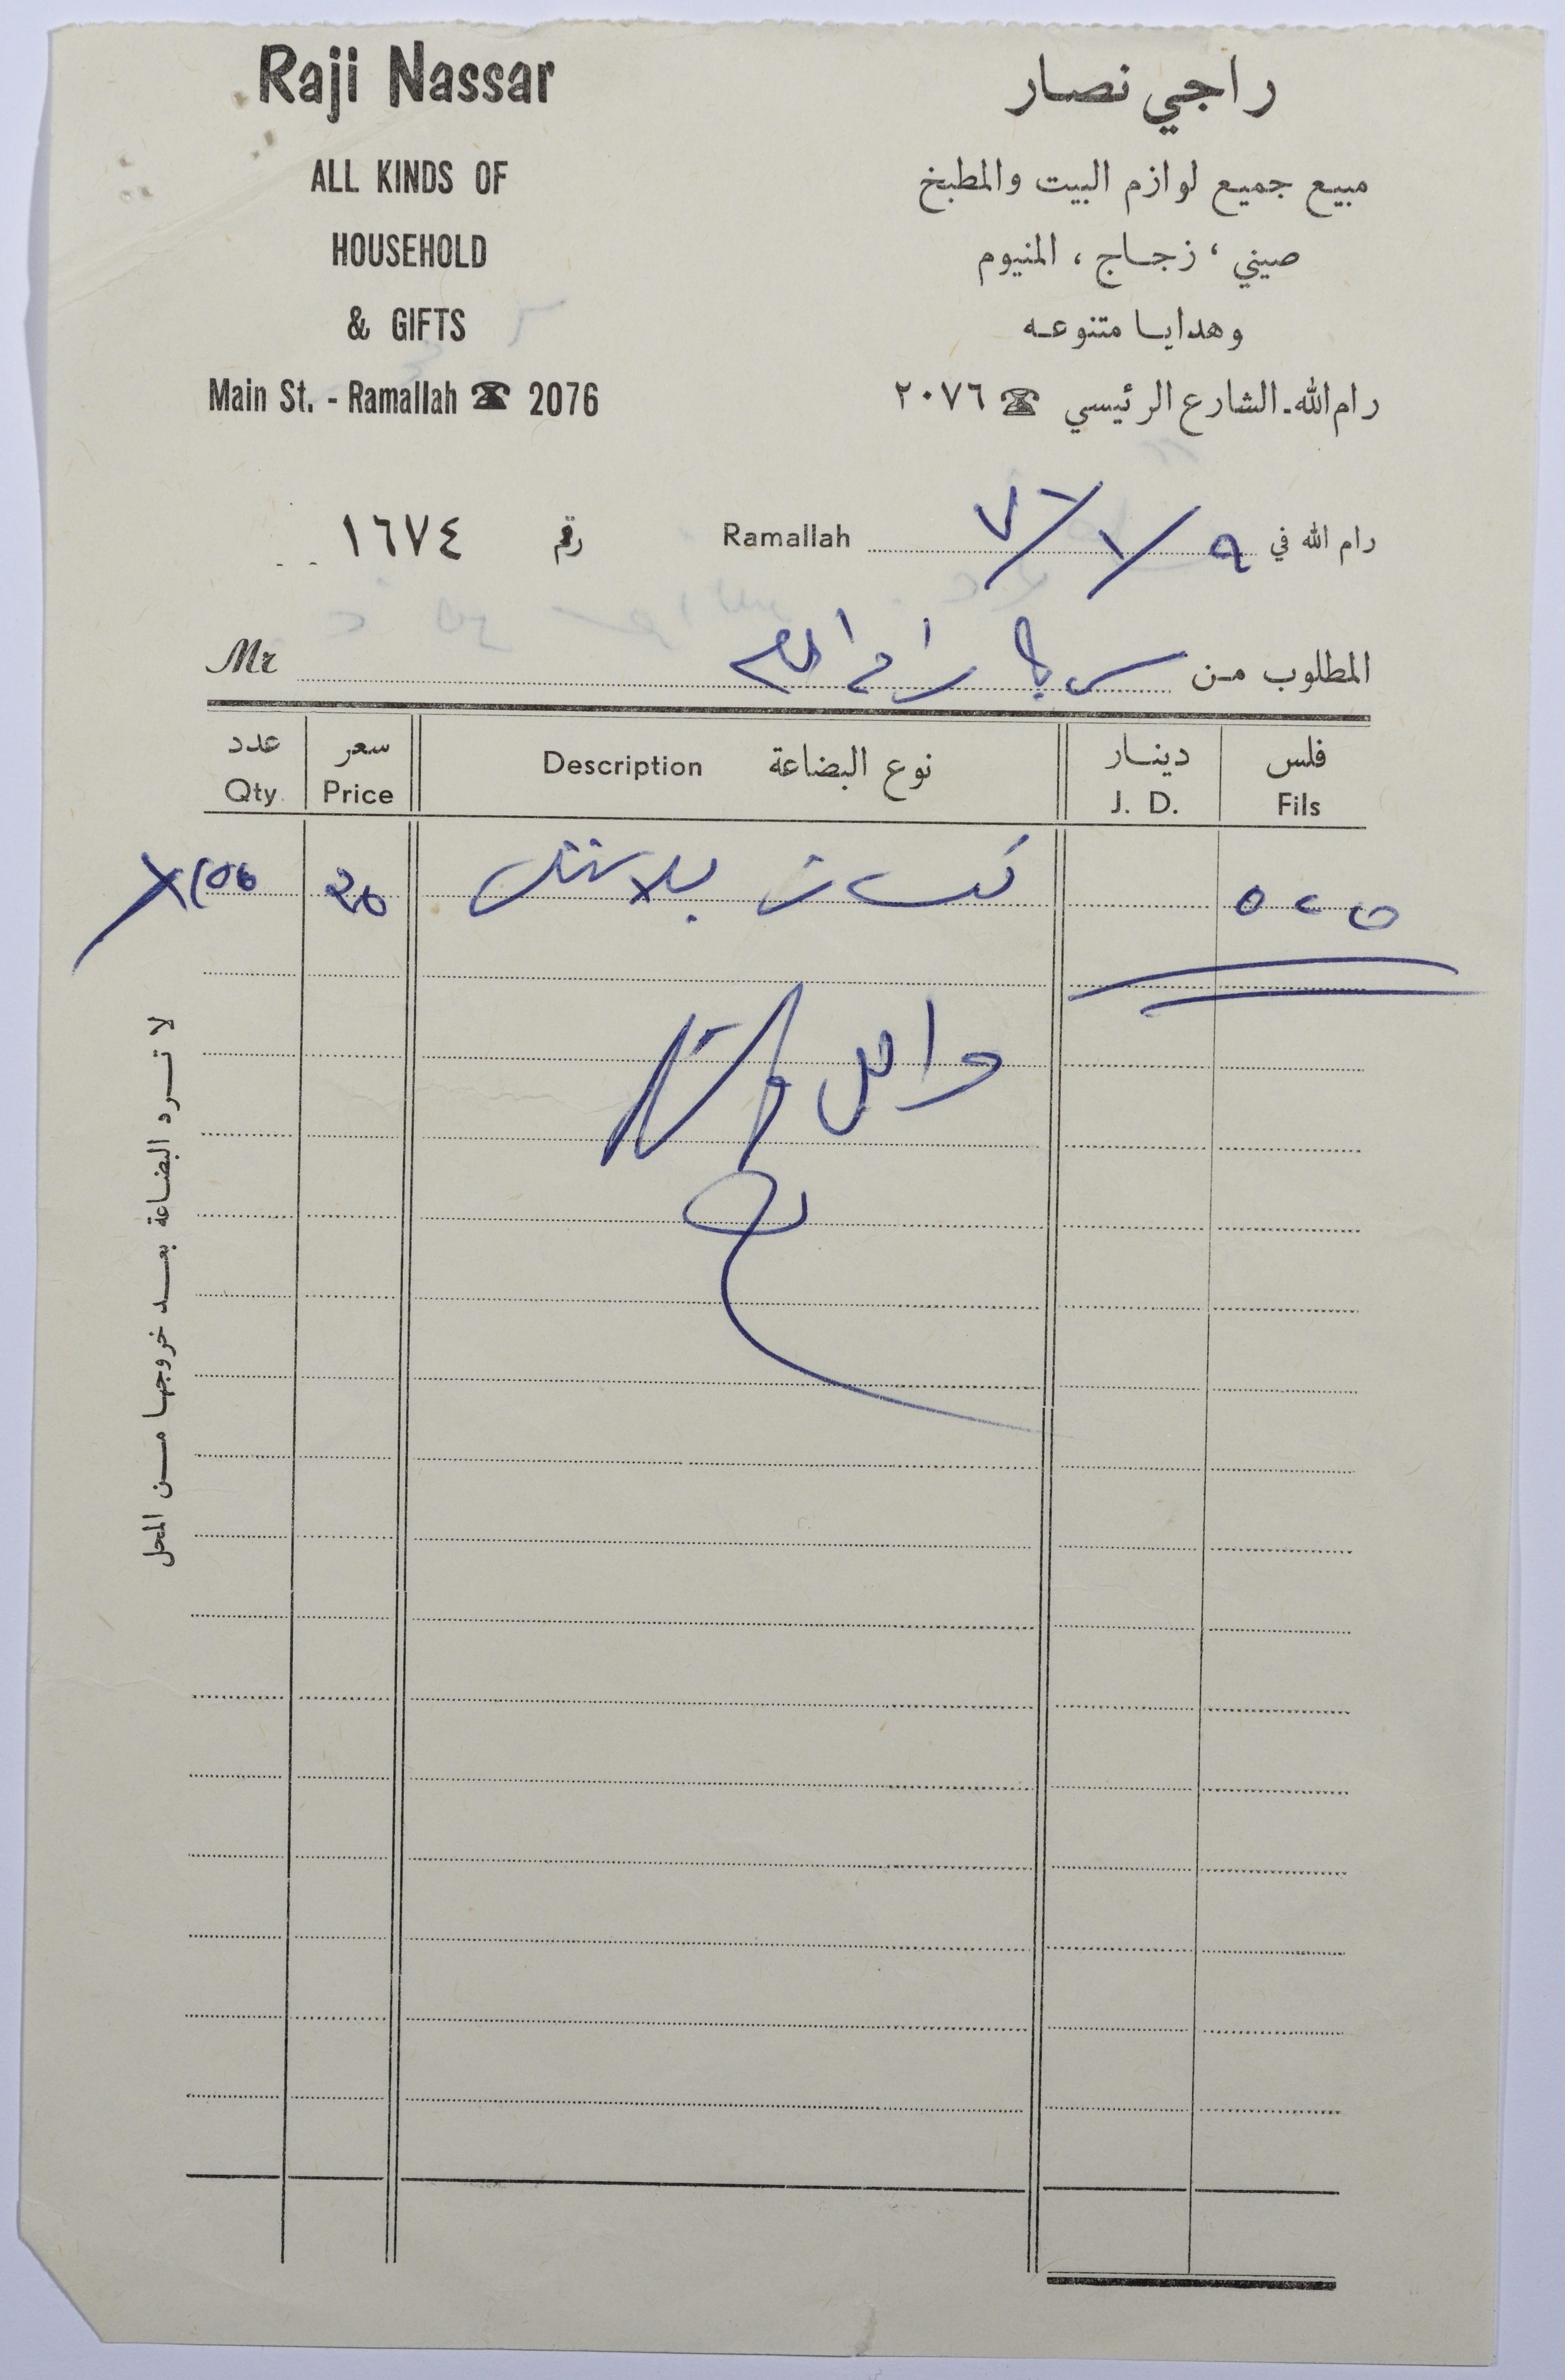 Raji Nassar
ALL KINDS OF
HOUSEHOLD
& GIFTS
Main St. - Ramallah ☎ 2076
راجي نصار
مبيع جميع لوازم البيت والمطبخ
صيني ، زجاج ، المنيوم
وهدايا متنوعه
رام الله ـ الشارع الرئيسي ☎ ٢٠٧٦
رام الله في ٩/٧/٧٦ Ramallah
رقم ١٦٧٤
المطلوب من سرية رام الله Mr
فلس دينار نوع البضاعة سعر عدد
Qty. Price Description J. D. Fils
كاسات بلاستك
لا ترد البضاعة بعد خروجها من المحل